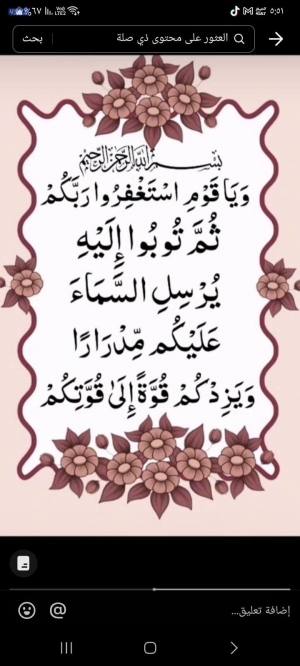 ٥:٥١
٦٧%
العثور على محتوى ذي صلة
بحث
بسم الله الرحمن الرحيم
وَيَا قَوْمِ اسْتَغْفِرُوا رَبَّكُمْ
ثُمَّ تُوبُوا إِلَيْهِ
يُرْسِلِ السَّمَاءَ
عَلَيْكُم مِّدْرَارًا
وَيَزِدْكُمْ قُوَّةً إِلَىٰ قُوَّتِكُمْ
إضافة تعليق...